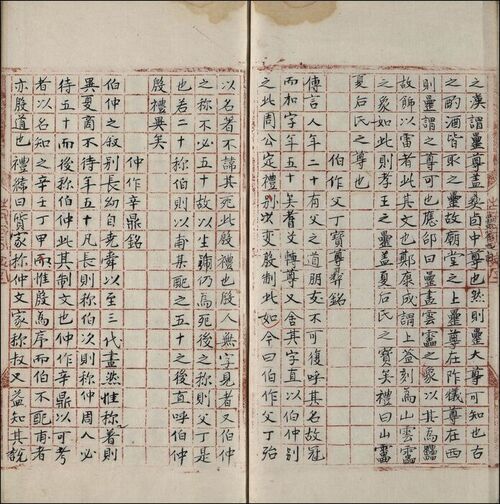 之漢謂之尊蓋彝卣中尊也然則罍大尊知也古
之酌酒皆取之罍故廟堂之上罍尊在阼犧尊在西
則罍謂之尊可也應邵曰罍畫雲靁之象以其為靁
故飾以雷者此其文也鄭康成謂上盖刻為山雲靁
之象如此則孝王之罍盖夏后氏之寶矣禮曰山罍
夏后氏之尊也
伯作父丁寶尊彝銘
傳言人年二十有父之道朋友不可復呼其名故冠
而加字年五十矣耆艾轉尊又舍其字直以伯仲別
之此周公定禮別以變殷制此如今曰伯作父丁殆
以名者不諦其死此殷禮也殷人無字見者又伯仲
之称不必五十故以生仍為死後之称則父丁是
也若二十称伯則以甫某配之五十之後直呼伯仲
殷禮異矣
仲作辛鼎銘
伯仲之叙別長幼自堯舜以至三代盡然惟称者則
異夏商不待年五十凡長則称伯次則称仲周人必
待五十而後称伯仲此其制文也仲作辛鼎以可考
者以名知之辛壬丁甲而惟殷為序而伯不配甫者
亦殷道也禮緯曰質家称仲文家称叔又益知其說